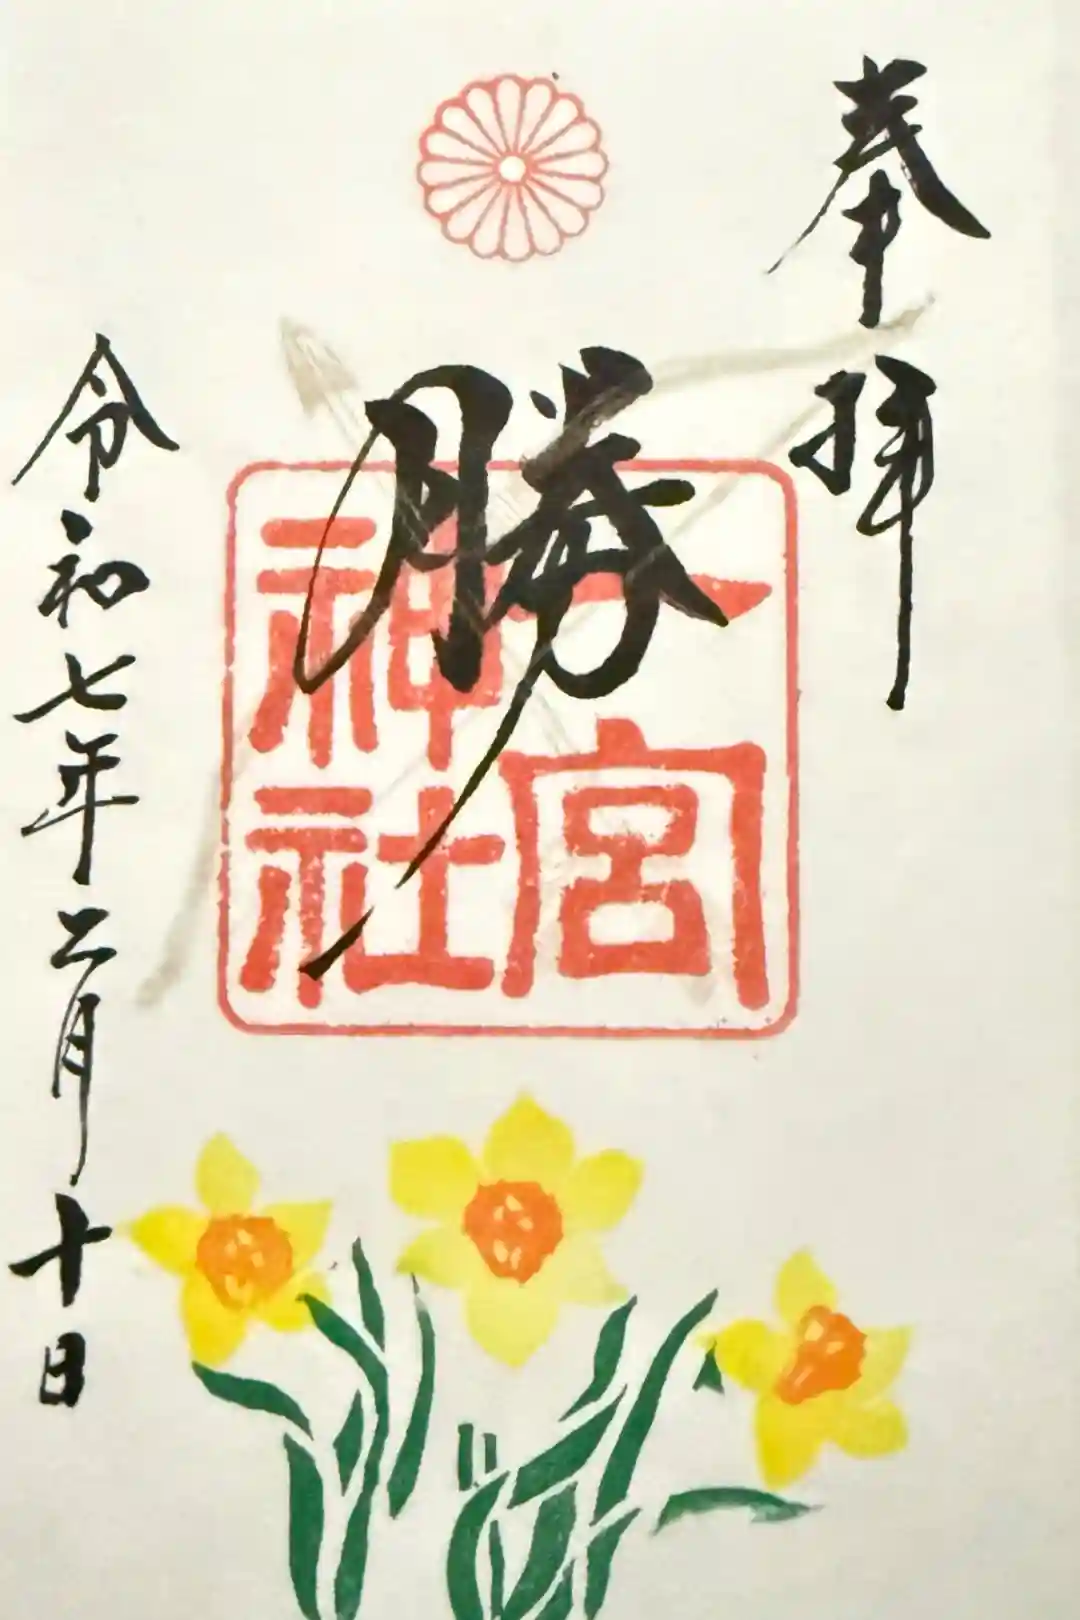 奉拝
勝
一宮
神社
令和七年二月十日